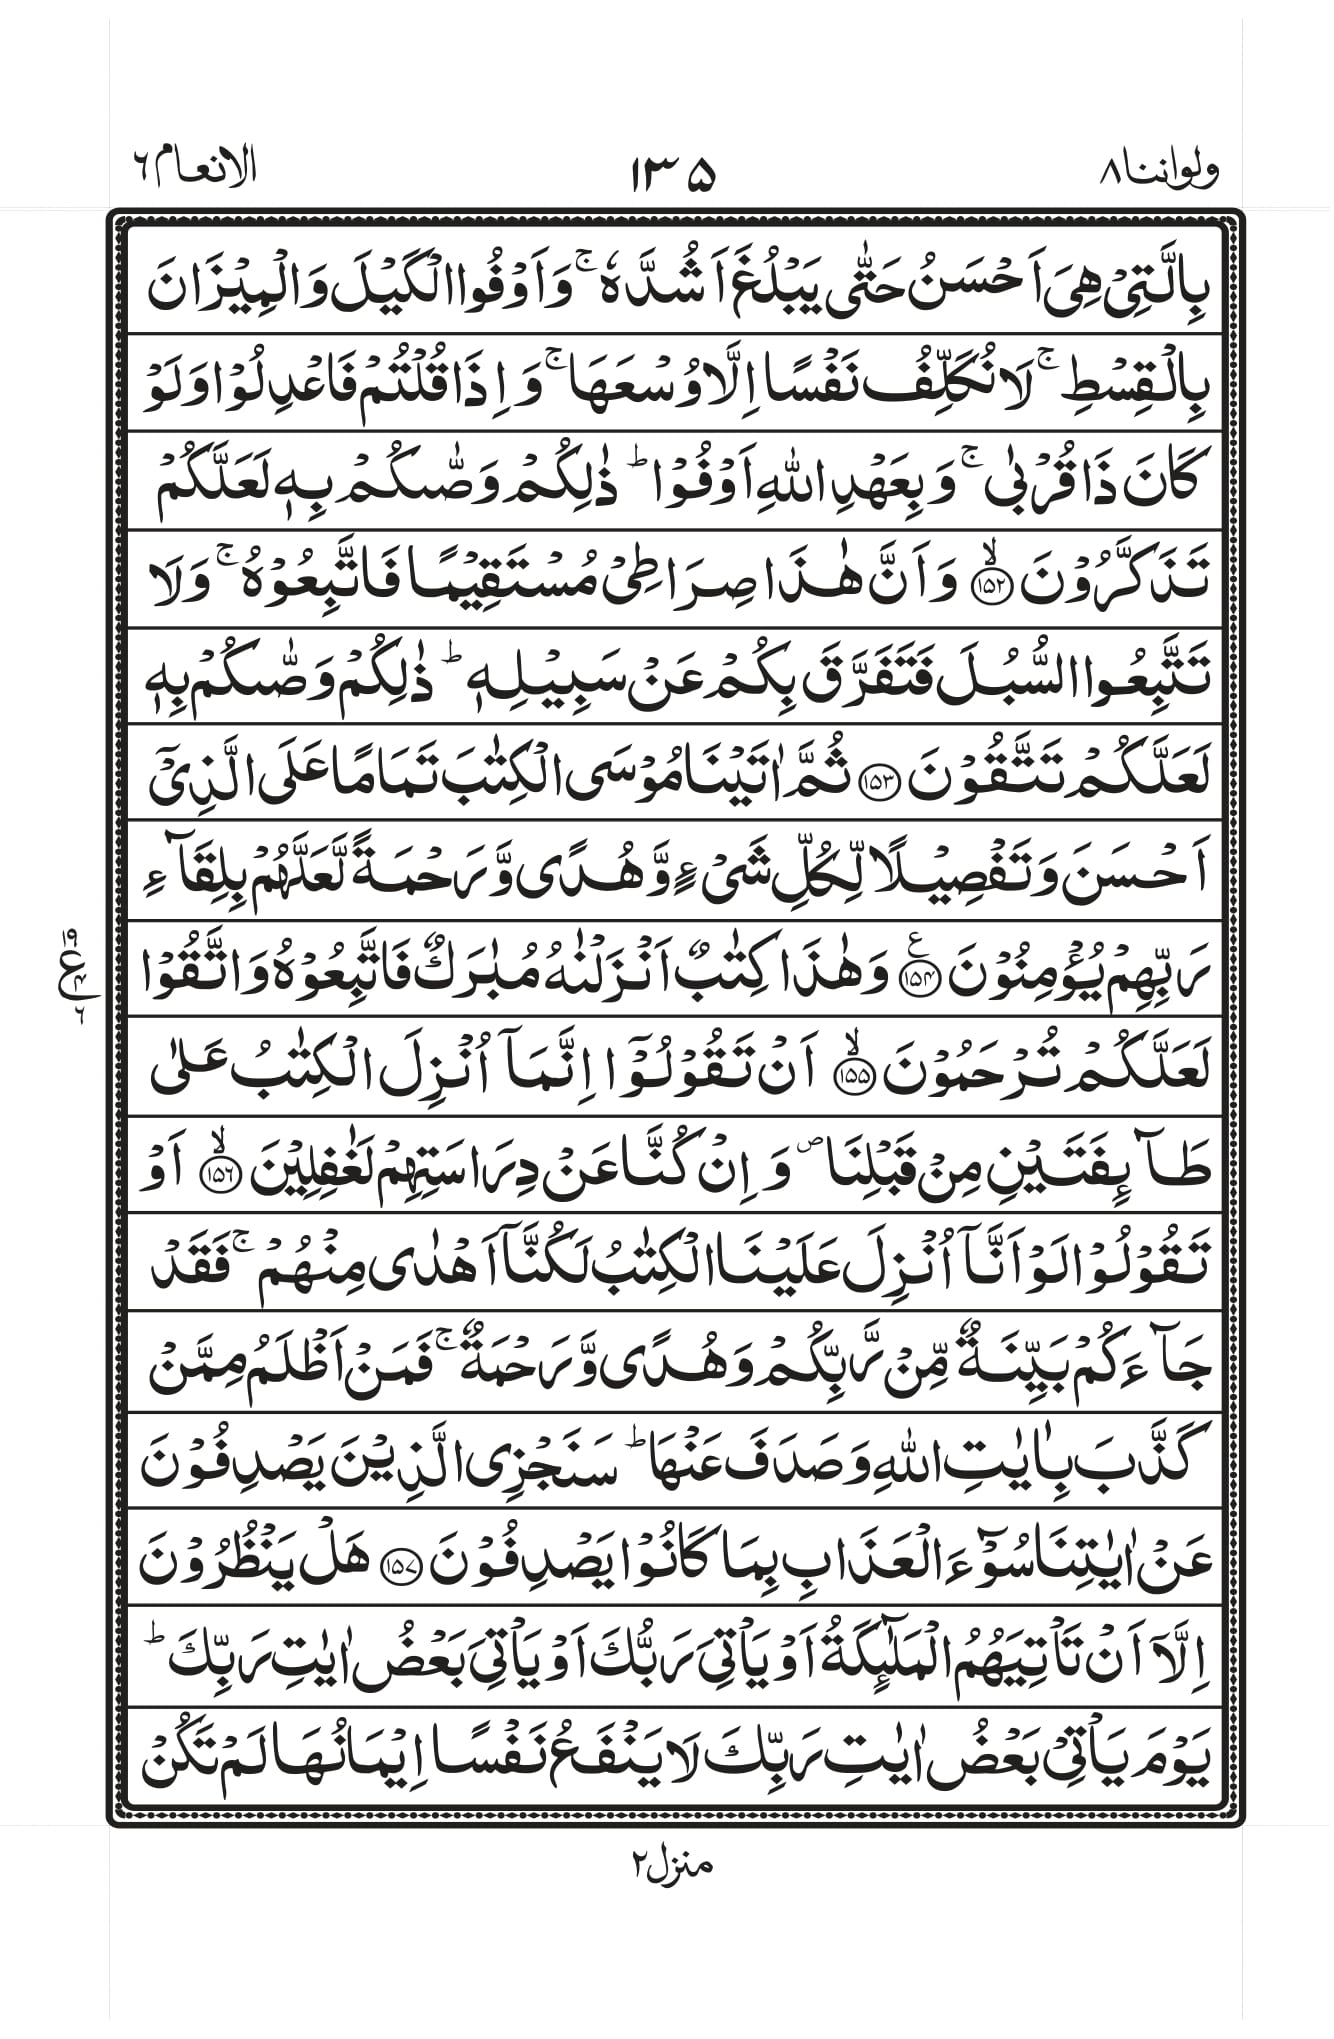 ولواننا ٨
١٣۵
الانعام ٦
بِالَّتِیْ هِیَ اَحْسَنُ حَتّٰی یَبْلُغَ اَشُدَّهٗ ۚ وَاَوْفُوا الْكَیْلَ وَالْمِیْزَانَ
بِالْقِسْطِ ۚ لَا نُكَلِّفُ نَفْسًا اِلَّا وُسْعَهَا ۚ وَ اِذَا قُلْتُمْ فَاعْدِلُوْا وَلَوْ
كَانَ ذَا قُرْبٰی ۚ وَ بِعَهْدِ اللهِ اَوْفُوْا ؕ ذٰلِكُمْ وَصّٰىكُمْ بِهٖ لَعَلَّكُمْ
تَذَكَّرُوْنَ ۙ﴿١۵٢﴾ وَاَنَّ هٰذَا صِرَاطِیْ مُسْتَقِیْمًا فَاتَّبِعُوْهُ ۚ وَلَا
تَتَّبِعُوا السُّبُلَ فَتَفَرَّقَ بِكُمْ عَنْ سَبِیْلِهٖ ؕ ذٰلِكُمْ وَصّٰىكُمْ بِهٖ
لَعَلَّكُمْ تَتَّقُوْنَ ﴿١۵٣﴾ ثُمَّ اٰتَیْنَا مُوْسَی الْكِتٰبَ تَمَامًا عَلَی الَّذِیْۤ
اَحْسَنَ وَتَفْصِیْلًا لِّكُلِّ شَیْءٍ وَّهُدًی وَّرَحْمَةً لَّعَلَّهُمْ بِلِقَآءِ
رَبِّهِمْ یُؤْمِنُوْنَ ﴿١۵۴﴾ۧ وَهٰذَا كِتٰبٌ اَنْزَلْنٰهُ مُبٰرَكٌ فَاتَّبِعُوْهُ وَاتَّقُوْا
١٩
ع
۴
٦
لَعَلَّكُمْ تُرْحَمُوْنَ ۙ﴿١۵۵﴾ اَنْ تَقُوْلُوْۤا اِنَّمَاۤ اُنْزِلَ الْكِتٰبُ عَلٰی
طَآئِفَتَیْنِ مِنْ قَبْلِنَا ۪ وَ اِنْ كُنَّا عَنْ دِرَاسَتِهِمْ لَغٰفِلِیْنَ ۙ﴿١۵٦﴾ اَوْ
تَقُوْلُوْا لَوْ اَنَّاۤ اُنْزِلَ عَلَیْنَا الْكِتٰبُ لَكُنَّاۤ اَهْدٰی مِنْهُمْ ۚ فَقَدْ
جَآءَكُمْ بَیِّنَةٌ مِّنْ رَّبِّكُمْ وَهُدًی وَّرَحْمَةٌ ۚ فَمَنْ اَظْلَمُ مِمَّنْ
كَذَّبَ بِاٰیٰتِ اللهِ وَصَدَفَ عَنْهَا ؕ سَنَجْزِی الَّذِیْنَ یَصْدِفُوْنَ
عَنْ اٰیٰتِنَا سُوْٓءَ الْعَذَابِ بِمَا كَانُوْا یَصْدِفُوْنَ ﴿١۵٧﴾ هَلْ یَنْظُرُوْنَ
اِلَّاۤ اَنْ تَاْتِیَهُمُ الْمَلٰٓئِكَةُ اَوْ یَاْتِیَ رَبُّكَ اَوْ یَاْتِیَ بَعْضُ اٰیٰتِ رَبِّكَ ؕ
یَوْمَ یَاْتِیْ بَعْضُ اٰیٰتِ رَبِّكَ لَا یَنْفَعُ نَفْسًا اِیْمَانُهَا لَمْ تَكُنْ
منزل ٢